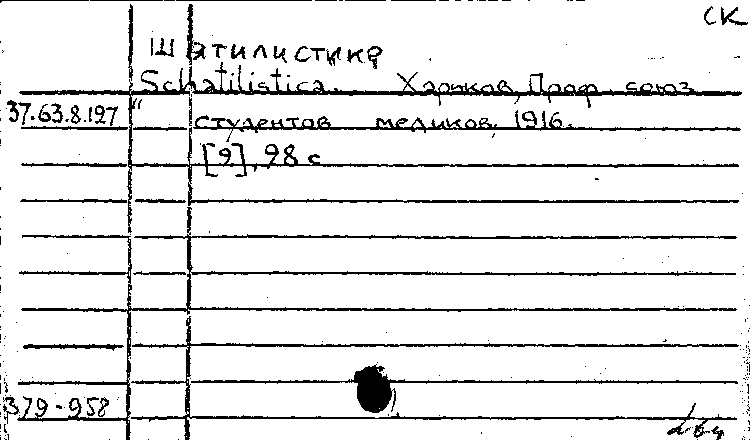 СК
Шатилистика
Schatilistica. Харьков, Проф. союз
37.63.8.127 студентов медиков, 1916.
[9], 98 с
379-958